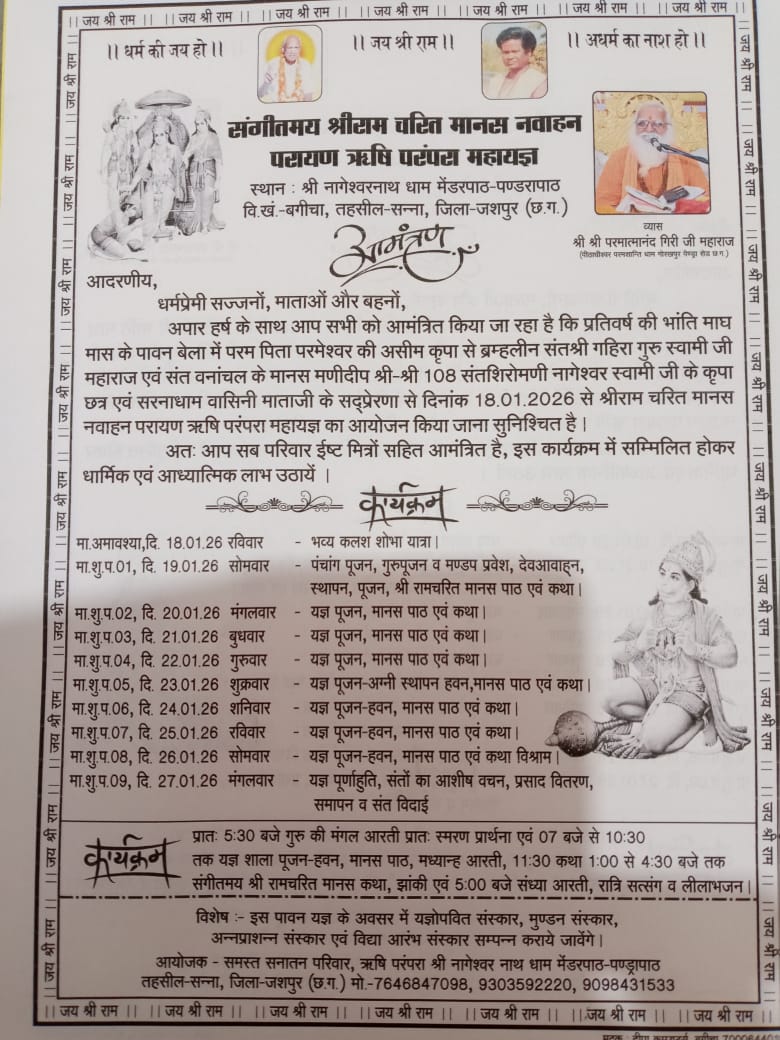 || जय श्री राम || || जय श्री राम || || जय श्री राम || || जय श्री राम || || जय श्री राम || || जय श्री राम || || जय श्री राम ||
|| धर्म की जय हो || || जय श्री राम || || अधर्म का नाश हो ||
संगीतमय श्रीराम चरित मानस नवाहन
परायण ऋषि परंपरा महायज्ञ
स्थान : श्री नागेश्वरनाथ धाम मेंडरपाठ-पण्डरापाठ
वि.खं.-बगीचा, तहसील-सन्ना, जिला-जशपुर (छ.ग.)
व्यास
श्री श्री परमात्मानंद गिरी जी महाराज
(पीठाधीश्वर परमशान्ति धाम गोरखपुर पेण्ड्रा रोड छ.ग.)
आमंत्रण
आदरणीय,
धर्मप्रेमी सज्जनों, माताओं और बहनों,
अपार हर्ष के साथ आप सभी को आमंत्रित किया जा रहा है कि प्रतिवर्ष की भांति माघ
मास के पावन बेला में परम पिता परमेश्वर की असीम कृपा से ब्रम्हलीन संतश्री गहिरा गुरु स्वामी जी
महाराज एवं संत वनांचल के मानस मणीदीप श्री-श्री 108 संतशिरोमणी नागेश्वर स्वामी जी के कृपा
छत्र एवं सरनाधाम वासिनी माताजी के सद्प्रेरणा से दिनांक 18.01.2026 से श्रीराम चरित मानस
नवाहन परायण ऋषि परंपरा महायज्ञ का आयोजन किया जाना सुनिश्चित है।
अतः आप सब परिवार ईष्ट मित्रों सहित आमंत्रित है, इस कार्यक्रम में सम्मिलित होकर
धार्मिक एवं आध्यात्मिक लाभ उठायें ।
कार्यक्रम
मा.अमावश्या,दि. 18.01.26 रविवार - भव्य कलश शोभा यात्रा।
मा.शु.प.01, दि. 19.01.26 सोमवार - पंचांग पूजन, गुरुपूजन व मण्डप प्रवेश, देवआवाह्न,
स्थापन, पूजन, श्री रामचरित मानस पाठ एवं कथा।
मा.शु.प.02, दि. 20.01.26 मंगलवार - यज्ञ पूजन, मानस पाठ एवं कथा।
मा.शु.प.03, दि. 21.01.26 बुधवार - यज्ञ पूजन, मानस पाठ एवं कथा।
मा.शु.प.04, दि. 22.01.26 गुरुवार - यज्ञ पूजन, मानस पाठ एवं कथा।
मा.शु.प.05, दि. 23.01.26 शुक्रवार - यज्ञ पूजन-अग्नी स्थापन हवन,मानस पाठ एवं कथा।
मा.शु.प.06, दि. 24.01.26 शनिवार - यज्ञ पूजन-हवन, मानस पाठ एवं कथा।
मा.शु.प.07, दि. 25.01.26 रविवार - यज्ञ पूजन-हवन, मानस पाठ एवं कथा।
मा.शु.प.08, दि. 26.01.26 सोमवार - यज्ञ पूजन-हवन, मानस पाठ एवं कथा विश्राम।
मा.शु.प.09, दि. 27.01.26 मंगलवार - यज्ञ पूर्णाहुति, संतों का आशीष वचन, प्रसाद वितरण,
समापन व संत विदाई
कार्यक्रम
प्रातः 5:30 बजे गुरु की मंगल आरती प्रातः स्मरण प्रार्थना एवं 07 बजे से 10:30
तक यज्ञ शाला पूजन-हवन, मानस पाठ, मध्यान्ह आरती, 11:30 कथा 1:00 से 4:30 बजे तक
संगीतमय श्री रामचरित मानस कथा, झांकी एवं 5:00 बजे संध्या आरती, रात्रि सत्संग व लीलाभजन।
विशेष :- इस पावन यज्ञ के अवसर में यज्ञोपवित संस्कार, मुण्डन संस्कार,
अन्नप्राशन्न संस्कार एवं विद्या आरंभ संस्कार सम्पन्न कराये जावेंगे।
आयोजक - समस्त सनातन परिवार, ऋषि परंपरा श्री नागेश्वर नाथ धाम मेंडरपाठ-पण्ड्रापाठ
तहसील-सन्ना, जिला-जशपुर (छ.ग.) मो.-7646847098, 9303592220, 9098431533
|| जय श्री राम || || जय श्री राम || || जय श्री राम || || जय श्री राम || || जय श्री राम || || जय श्री राम || || जय श्री राम ||